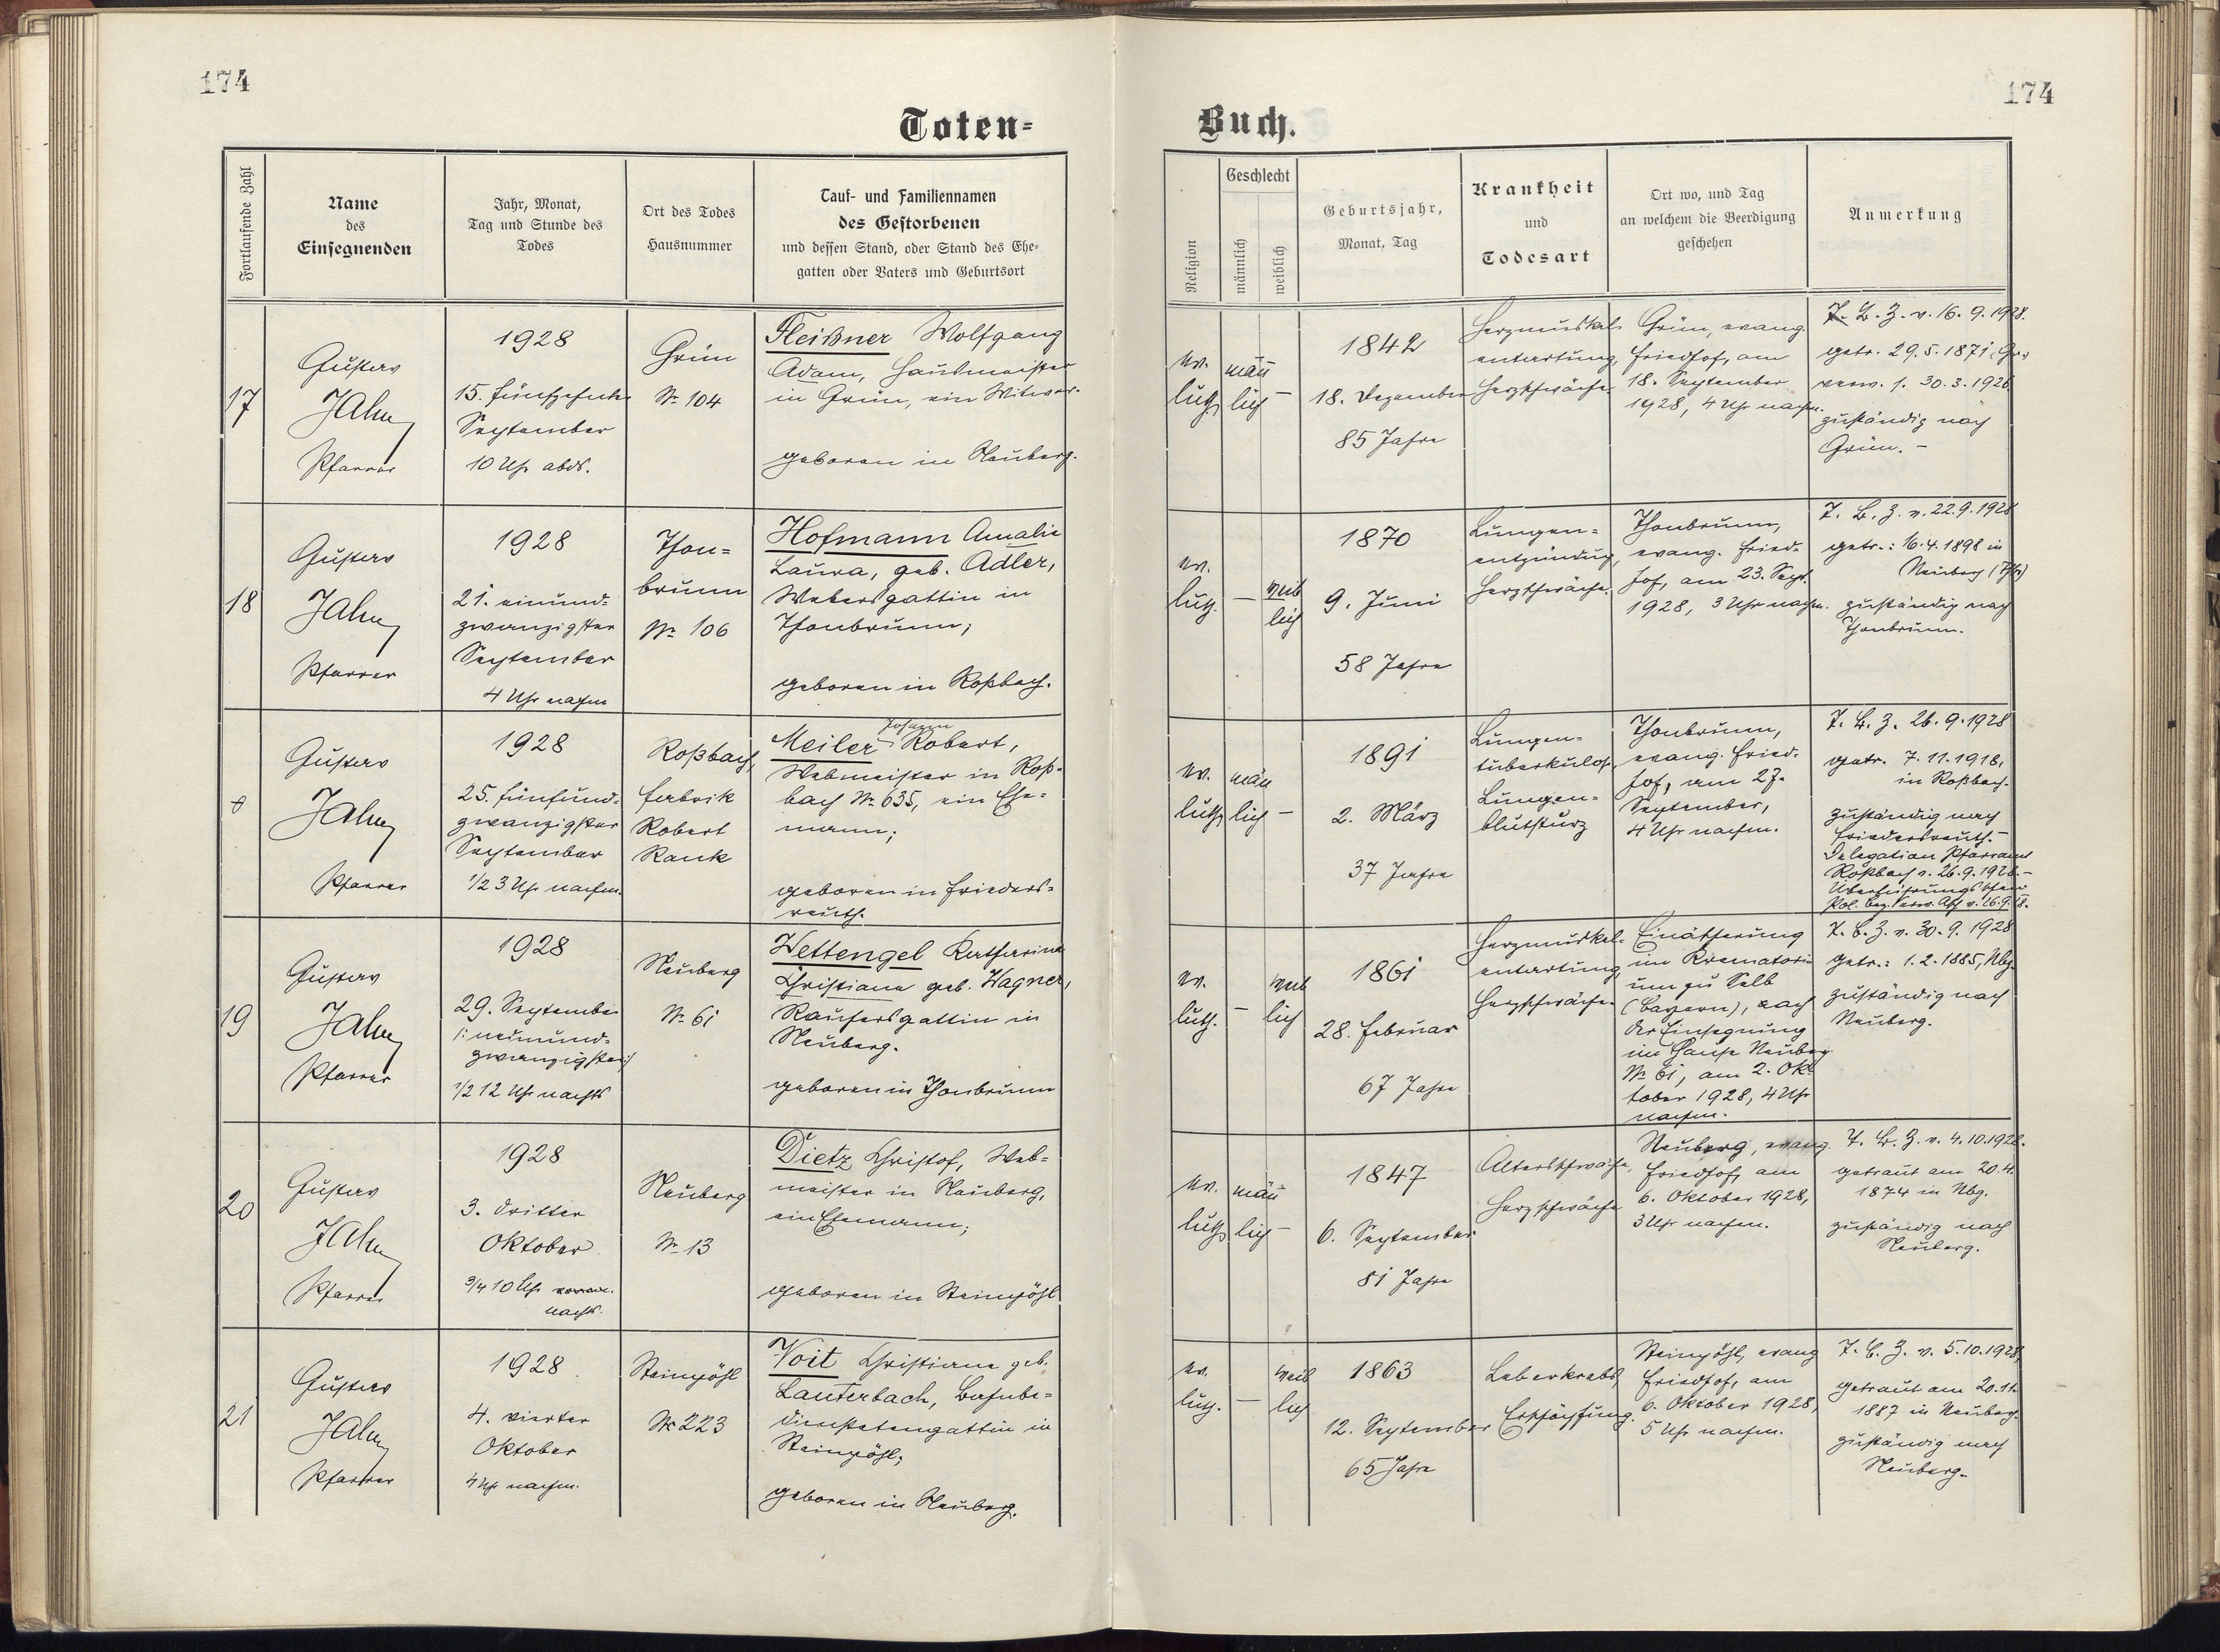 174
174
Toten-
Buch.
Fortlaufende Zahl
Name
des
Einsegnenden
Jahr, Monat,
Tag und Stunde des
Todes
Ort des Todes
Hausnummer
Tauf- und Familiennamen
des Gestorbenen
und dessen Stand, oder Stand des Ehe-
gatten oder Vaters und Geburtsort
Religion
Geschlecht
männlich
weiblich
Geburtsjahr,
Monat, Tag
Krankheit
und
Todesart
Ort wo, und Tag
an welchem die Beerdigung
geschehen
Anmerkung
17
Gustav
Jahn
Pfarrer
1928
15. fünfzehnter
September
10 Uhr abds.
Grün
Nr. 104
Fleißner Wolfgang
Adam, Hausmeister
in Grün, ein Witwer.
geboren in Neuberg.
ev.
luth.
männ
lich
–
1842
18. Dezember
85 Jahre
Herzmuskel-
entartung,
Herzschwäche.
Grün, evang.
Friedhof, am
18. September
1928, 4 Uhr nachm.
T. B. Z. v. 16. 9. 1928.
getr. 29. 5. 1871, Gr.
verw. 1. 30. 3. 1926
zuständig nach
Grün. –
18
Gustav
Jahn
Pfarrer
1928
21. einund-
zwanzigster
September
4 Uhr nachm
Thon-
brunn
Nr. 106
Hofmann Amalie
Laura, geb. Adler,
Webersgattin in
Thonbrunn;
geboren in Roßbach.
ev.
luth.
–
weib
lich
1870
9. Juni
58 Jahre
Lungen-
entzündung,
Herzschwäche.
Thonbrunn,
evang. Fried-
hof, am 23. Sept.
1928, 3 Uhr nachm.
T. B. Z. v. 22. 9. 1928
getr.: 16. 4. 1898 in
Neuberg
zuständig nach
Thonbrunn.
Gustav
Jahn
Pfarrer
1928
25. fünfund-
zwanzigster
September
1/2 3 Uhr nachm.
Roßbach,
Fabrik
Robert
Rank
Johann
Meiler Robert,
Webmeister in Roß-
bach Nr. 635, ein Ehe-
mann;
geboren in Frieders-
reuth.
ev.
luth.
männ
lich
–
1891
2. März
37 Jahre
Lungen-
tuberkulose,
Lungen-
blutsturz
Thonbrunn,
evang. Fried-
hof, am 27.
September,
4 Uhr nachm.
T. B. Z. 26. 9. 1928
getr. 7. 11. 1918,
in Roßbach.
zuständig nach
Friedersreuth. –
Delegation Pfarramt
Roßbach v. 26. 9. 1928. –
Überführungs
Pol. Bez. Verw. Asch v. 26. 9. 28.
19
Gustav
Jahn
Pfarrer
1928
29. September
/: neunund-
zwanzigster :/
1/2 12 Uhr nachts
Neuberg
Nr. 61
Wettengel Katharina
Christiana geb. Wagner,
Kaufersgattin in
Neuberg.
geboren in Thonbrunn
ev.
luth.
–
weib
lich
1861
28. Februar
67 Jahre
Herzmuskel-
entartung,
Herzschwäche.
Einäscherung
im Krematori-
um zu Selb
(Bayern), nach
der Einsegnung
im Hause Neuberg
Nr. 61, am 2. Ok-
tober 1928, 4 Uhr
nachm.
T. B. Z. v. 30. 9. 1928
getr.: 1. 2. 1885, Nbg.
zuständig nach
Neuberg.
20
Gustav
Jahn
Pfarrer
1928
3. dritter
Oktober
3/4 10 Uhr
nachts.
Neuberg
Nr. 13
Dietz Christof, Web-
meister in Neuberg,
ein Ehemann;
geboren in Steinpöhl
ev.
luth.
männ
lich
–
1847
6. September
81 Jahre
Altersschwäche,
Herzschwäche
Neuberg, evang.
Friedhof, am
6. Oktober 1928,
3 Uhr nachm.
T. B. Z. v. 4. 10. 1928.
getraut am 20. 4.
1874 in Nbg.
zuständig nach
Neuberg.
21
Gustav
Jahn
Pfarrer
1928
4. vierter
Oktober
4 Uhr nachm.
Steinpöhl
Nr. 223
Voit Christiana geb.
Lauterbach, Bahnbe-
dienstetengattin in
Steinpöhl;
geboren in Neuberg.
ev.
luth.
–
weib
lich
1863
12. September
65 Jahre
Leberkrebs,
Erschöpfung.
Steinpöhl, evang
Friedhof, am
6. Oktober 1928,
5 Uhr nachm.
T. B. Z. v. 5. 10. 1928,
getraut am 20. 11.
1887 in Neuberg.
zuständig nach
Neuberg.